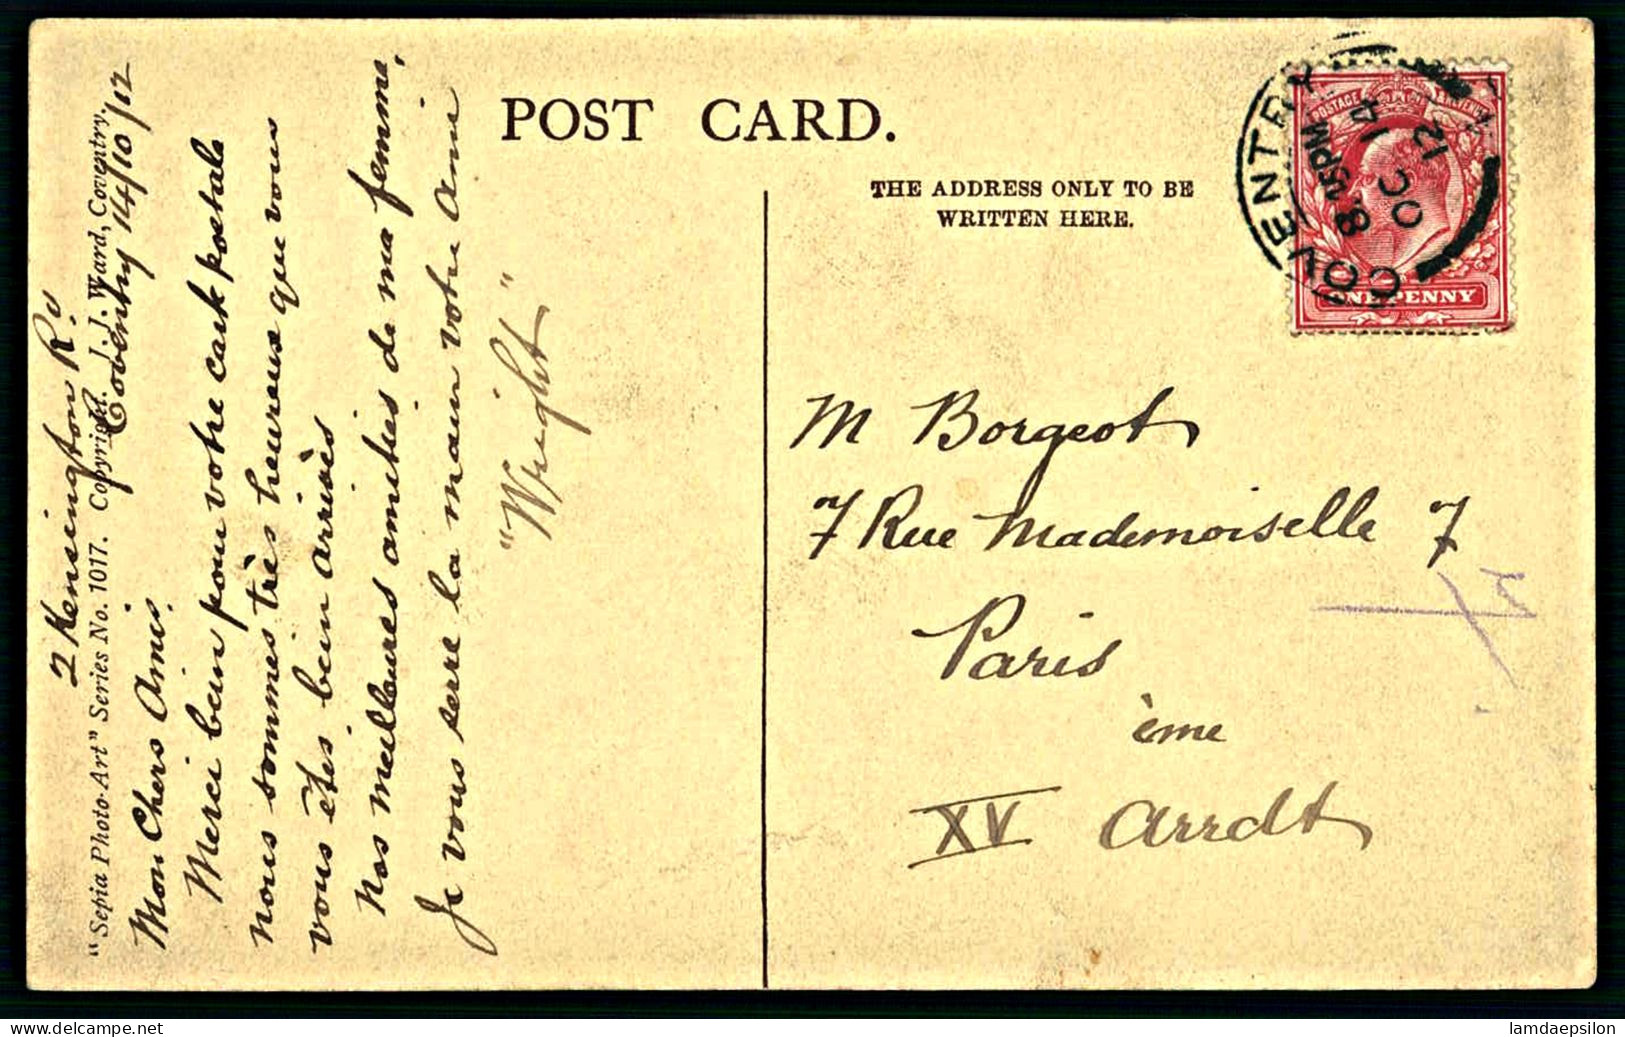 POST CARD.
THE ADDRESS ONLY TO BE
WRITTEN HERE.
"Sepia Photo-Art" Series No. 1017. Copyright. J. J. Ward, Coventry.
2 Kensington Rd
Coventry 14/10/12
Mon Chers Amis.
Merci bein pour votre cark postale
nous sommes très heureus que vous
vous êtes bein arrivès
Nos meilloures amities de ma femme,
Je vous serre la main votre Ami
"Wright"
COVENTRY
8.15PM
14
OC
12
POSTAGE REVENUE
ONE PENNY
M Borgeot
7 Rue Mademoiselle 7
Paris
ème
XV Arrdt
www.delcampe.net
lamdaepsilon